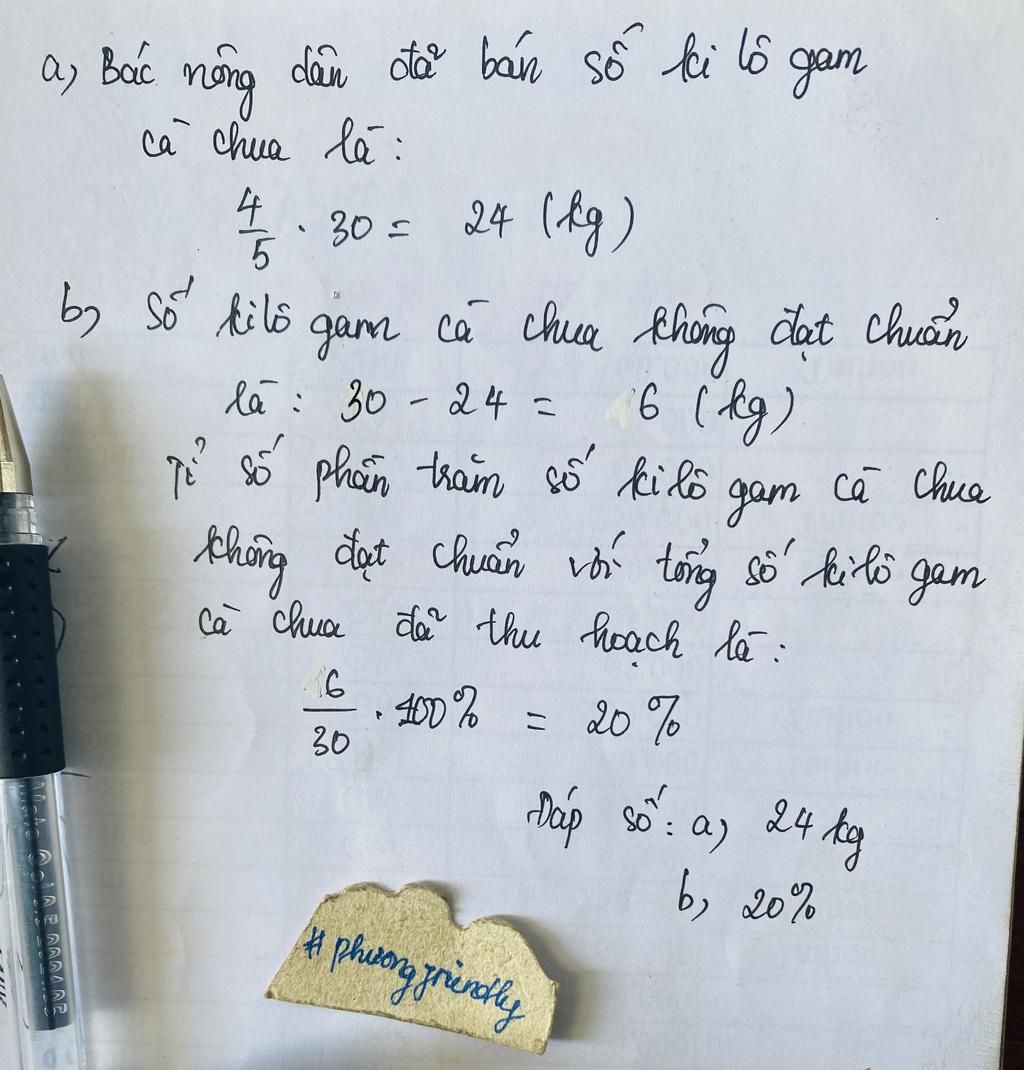 a, Bác nông dân đã bán số ki lô gam
cà chua là:
4/5 . 30 = 24 (kg)
b, Số ki lô gam cà chua không đạt chuẩn
là: 30 - 24 = 6 (kg)
Tỉ số phần trăm số ki lô gam cà chua
không đạt chuẩn với tổng số ki lô gam
cà chua đã thu hoạch là:
6/30 . 100% = 20%
Đáp số: a, 24 kg
b, 20%
#phuongfriendly